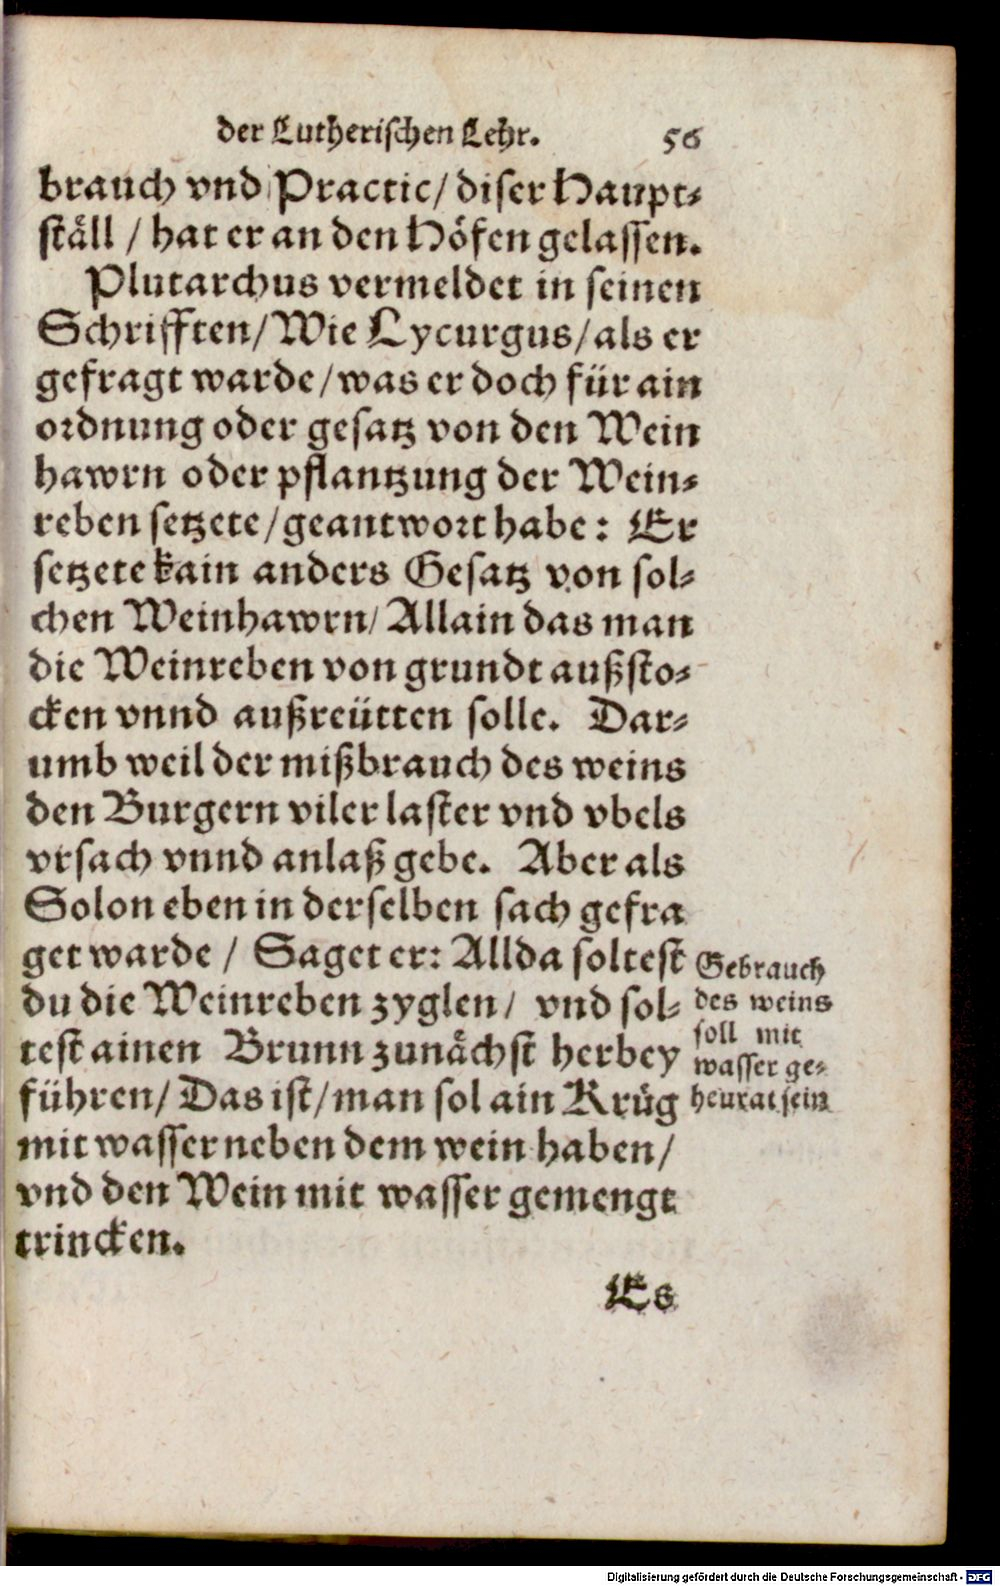 der Lutherischen Lehr. 56
brauch vnd Practic/ diser Haupt-
ställ / hat er an den Höfen gelassen.
Plutarchus vermeldet in seinen
Schrifften/ Wie Lycurgus/ als er
gefragt warde/ was er doch für ain
ordnung oder gesatz von den Wein
hawrn oder pflantzung der Wein-
reben setzete/ geantwort habe: Er
setzete kain anders Gesatz von sol-
chen Weinhawrn/ Allain das man
die Weinreben von grundt außsto-
cken vnnd außreütten solle. Dar-
umb weil der mißbrauch des weins
den Burgern viler laster vnd vbels
vrsach vnnd anlaß gebe. Aber als
Solon eben in derselben sach gefra
get warde / Saget er: Allda soltest
du die Weinreben zyglen/ vnd sol-
test ainen Brunn zunächst herbey
führen/ Das ist/ man sol ain Krůg
mit wasser neben dem wein haben/
vnd den Wein mit wasser gemengt
trincken.
Gebrauch
des weins
soll mit
wasser ge-
heurat sein
Es
Digitalisierung gefördert durch die Deutsche Forschungsgemeinschaft - DFG